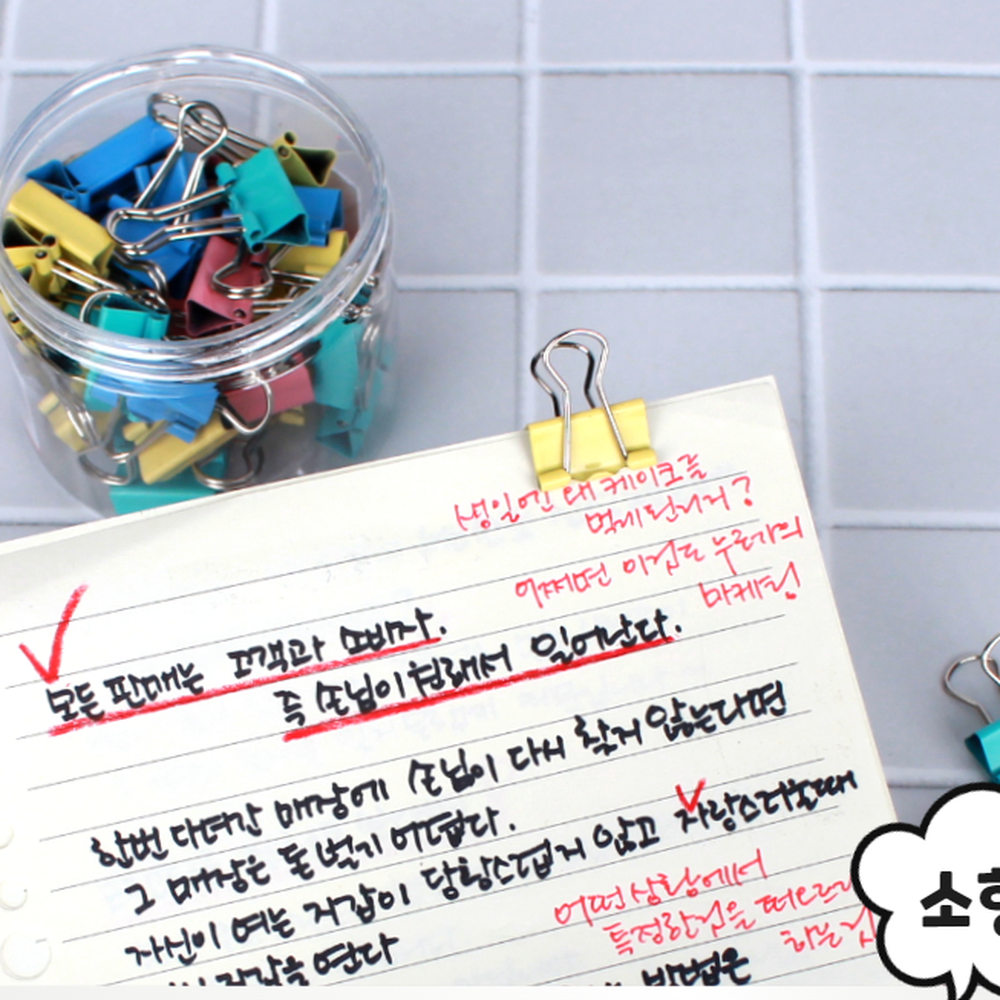 생일엔 왜 케이크를
먹게 된거지?
어쩌면 이것도 누군가의
마케팅
모든 판매는 고객과 소비자.
즉 손님이 원래서 일어난다.
한번 다녀간 매장에 손님이 다시 찾지 않는다면
그 매장은 돈 벌기 어렵다.
자신이 여는 지갑이 당황스럽지 않고 자랑스러울때
지갑을 연다
어떤 상황에서
특정한것을 떠오르
하는것
방법은